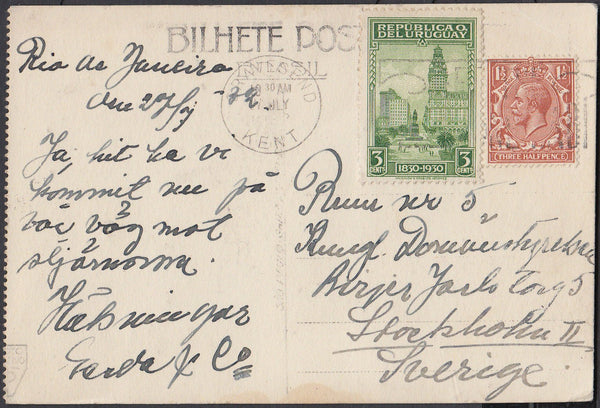 BILHETE POS
Rio de Janeiro
den 27/3 - 32
Ja, hit ha vi
kommit nu på
vår väg mot
stjärnorna.
Hälsningar
Garda & Co
30 AM
JLY
KENT
REPÚBLICA O.
DEL URUGUAY
3 CENTS 3 CENTS
1830-1930
1½ 1½
THREE HALFPENCE
Rum nr 5
Kungl Domänstyrelsen
Birjer Jarls Torg 5
Stockholm II
Sverige.